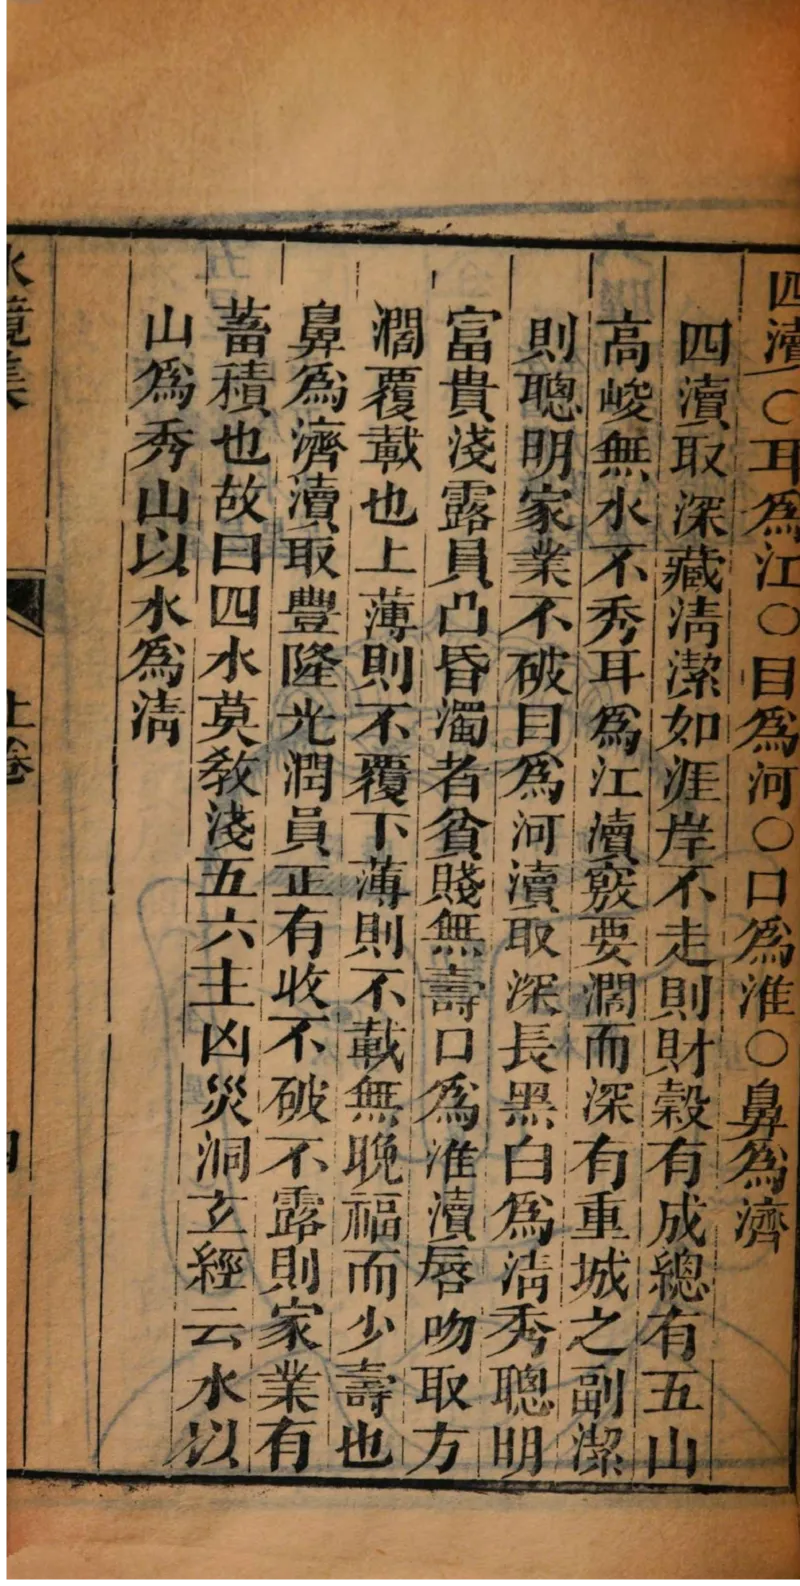 四瀆〇耳爲江〇目爲河〇口爲淮〇鼻爲濟
四瀆取深藏淸潔如涯岸不走則財穀有成總有五山
高峻無水不秀耳爲江瀆竅要濶而深有重城之副潔
則聰明家業不破目爲河瀆取深長黑白爲淸秀聰明
富貴淺露員凸昏濁者貧賤無壽口爲淮瀆唇吻取方
濶覆載也上薄則不覆下薄則不載無晚福而少壽也
鼻爲濟瀆取豐隆光潤員正有收不破不露則家業有
蓄積也故曰四水莫敎淺五六主凶災洞玄經云水以
山爲秀山以水爲淸
水鏡集
上卷